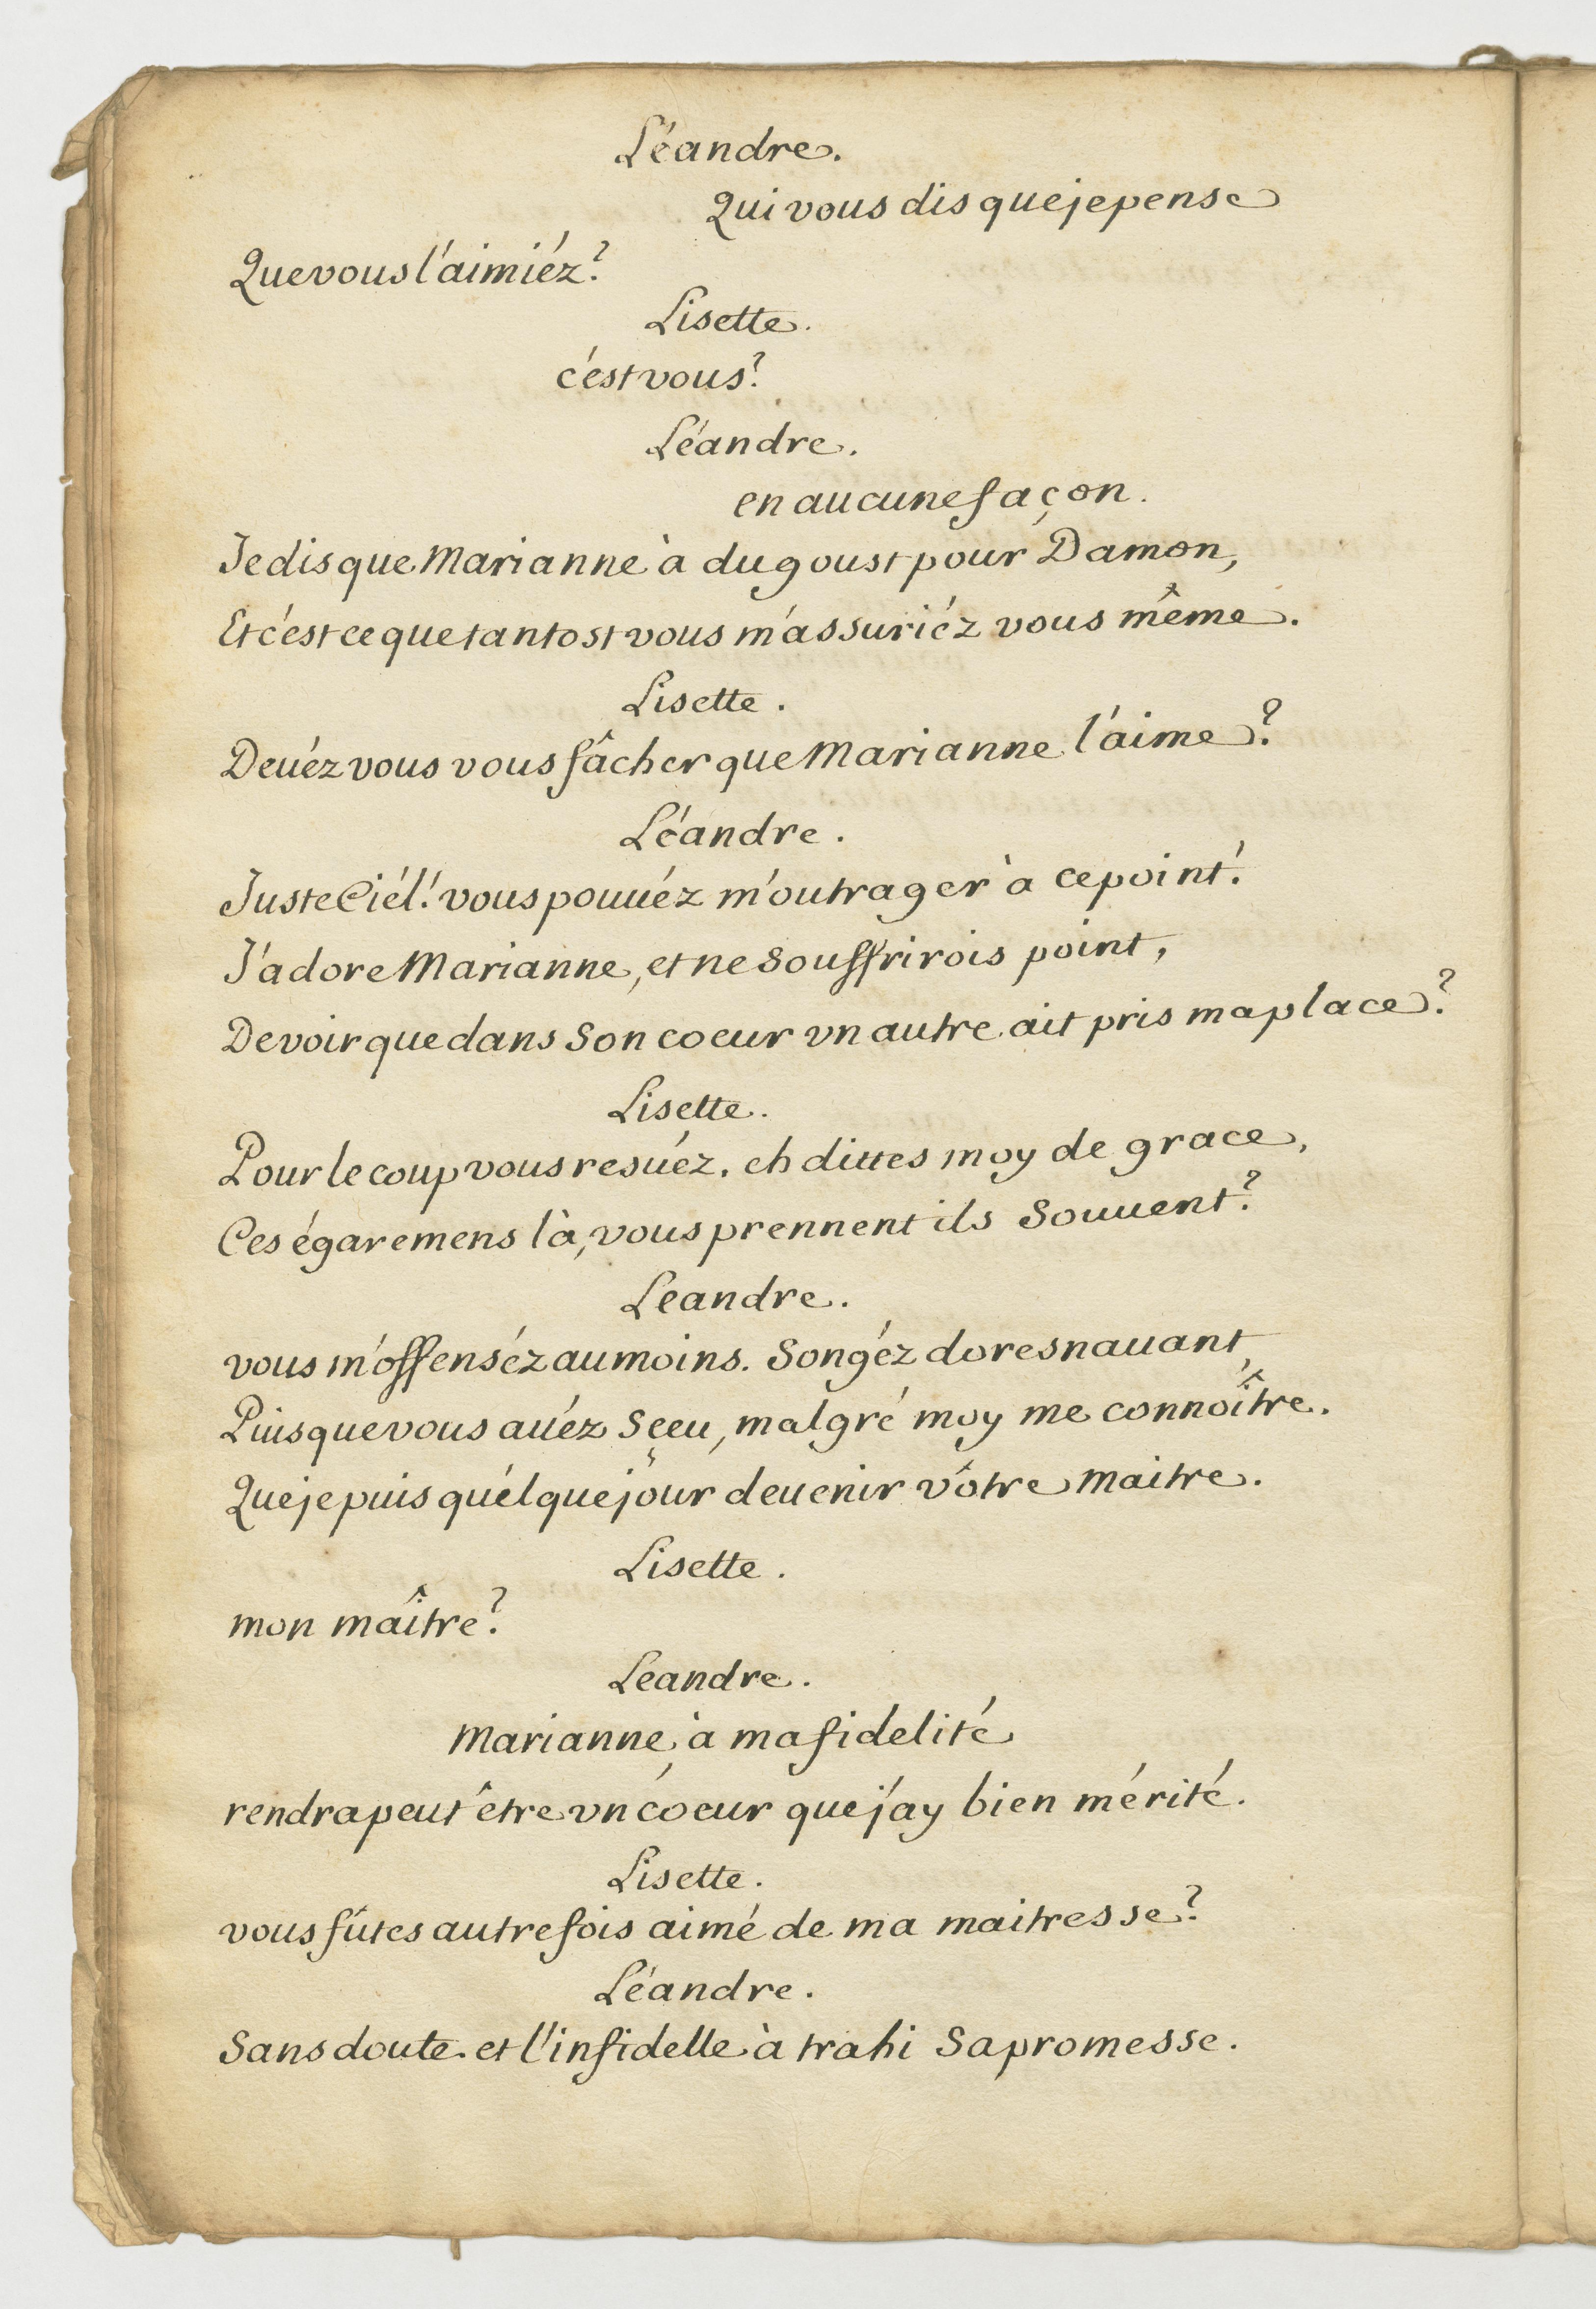 Léandre.
Qui vous dis que je pense
Que vous l'aimiéz?
Lisette.
c'est vous?
Léandre.
en aucune façon.
Je dis que Marianne à du goust pour Damon,
Et c'est ce que tantost vous m'assuriéz vous même.
Lisette.
Deuéz vous vous fâcher que Marianne l'aime?
Léandre.
Juste Ciél! vous pouuéz m'outrager à ce point!
J'adore Marianne, et ne souffrirois point,
De voir que dans son coeur vn autre ait pris ma place?
Lisette.
Pour le coup vous resuéz. eh dittes moy de grace,
Ces égaremens là, vous prennent ils souuent?
Leandre.
vous m'offenséz au moins. songéz doresnauant,
Puisque vous auéz sçeu, malgré moy me connoître.
Que je puis quélque jour deuenir vôtre maitre.
Lisette.
mon maître?
Leandre.
Marianne à ma fidelité
rendra peut être vn coeur que j'ay bien mérité.
Lisette.
vous fûtes autrefois aimé de ma maitresse?
Léandre.
Sans doute et l'infidelle à trahi sa promesse.